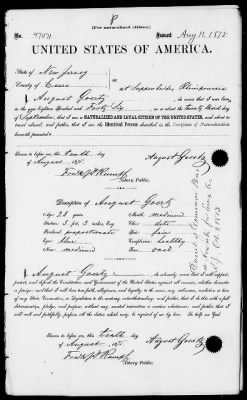 P
(For naturalized citizens.)
No. 47031 Issued Aug 11. 1875
UNITED STATES OF AMERICA.
State of New Jersey
County of Essex
I August Goertz, do swear that I was born
at
in the year Eighteen Hundred and Forty Six
of September; that I am a NATURALIZED AND LOYAL CITIZEN OF THE UNITED STATES, and about to
travel abroad, and further, that I am the Identical Person described in the Certificate of Naturalization
herewith presented.
Sworn to before me this tenth day
of August 1875.
August Goertz
Notary Public.
Description of August Goertz
Age: 28 years
Mouth: medium
Stature: 5 feet, 3 inches, Eng.
Forehead: proportionate
Hair: fair
Eyes: blue
Complexion: healthy
Nose: medium
Face: oval
I August Goertz, do solemnly swear that I will support,
protect, and defend the Constitution and Government of the United States against all enemies, whether domestic
or foreign; and that I will bear true faith, allegiance, and loyalty to the same, any ordinance, resolution or law
of any State, Convention, or Legislature to the contrary notwithstanding; and further, that I do this with a full
determination, pledge, and purpose, without any mental reservation or evasion whatsoever; and further, that I
will well and faithfully perform all the duties which may be required of me by law. So help me God.
Sworn to before me this tenth
day of August 1875.
August Goertz
Notary Public.